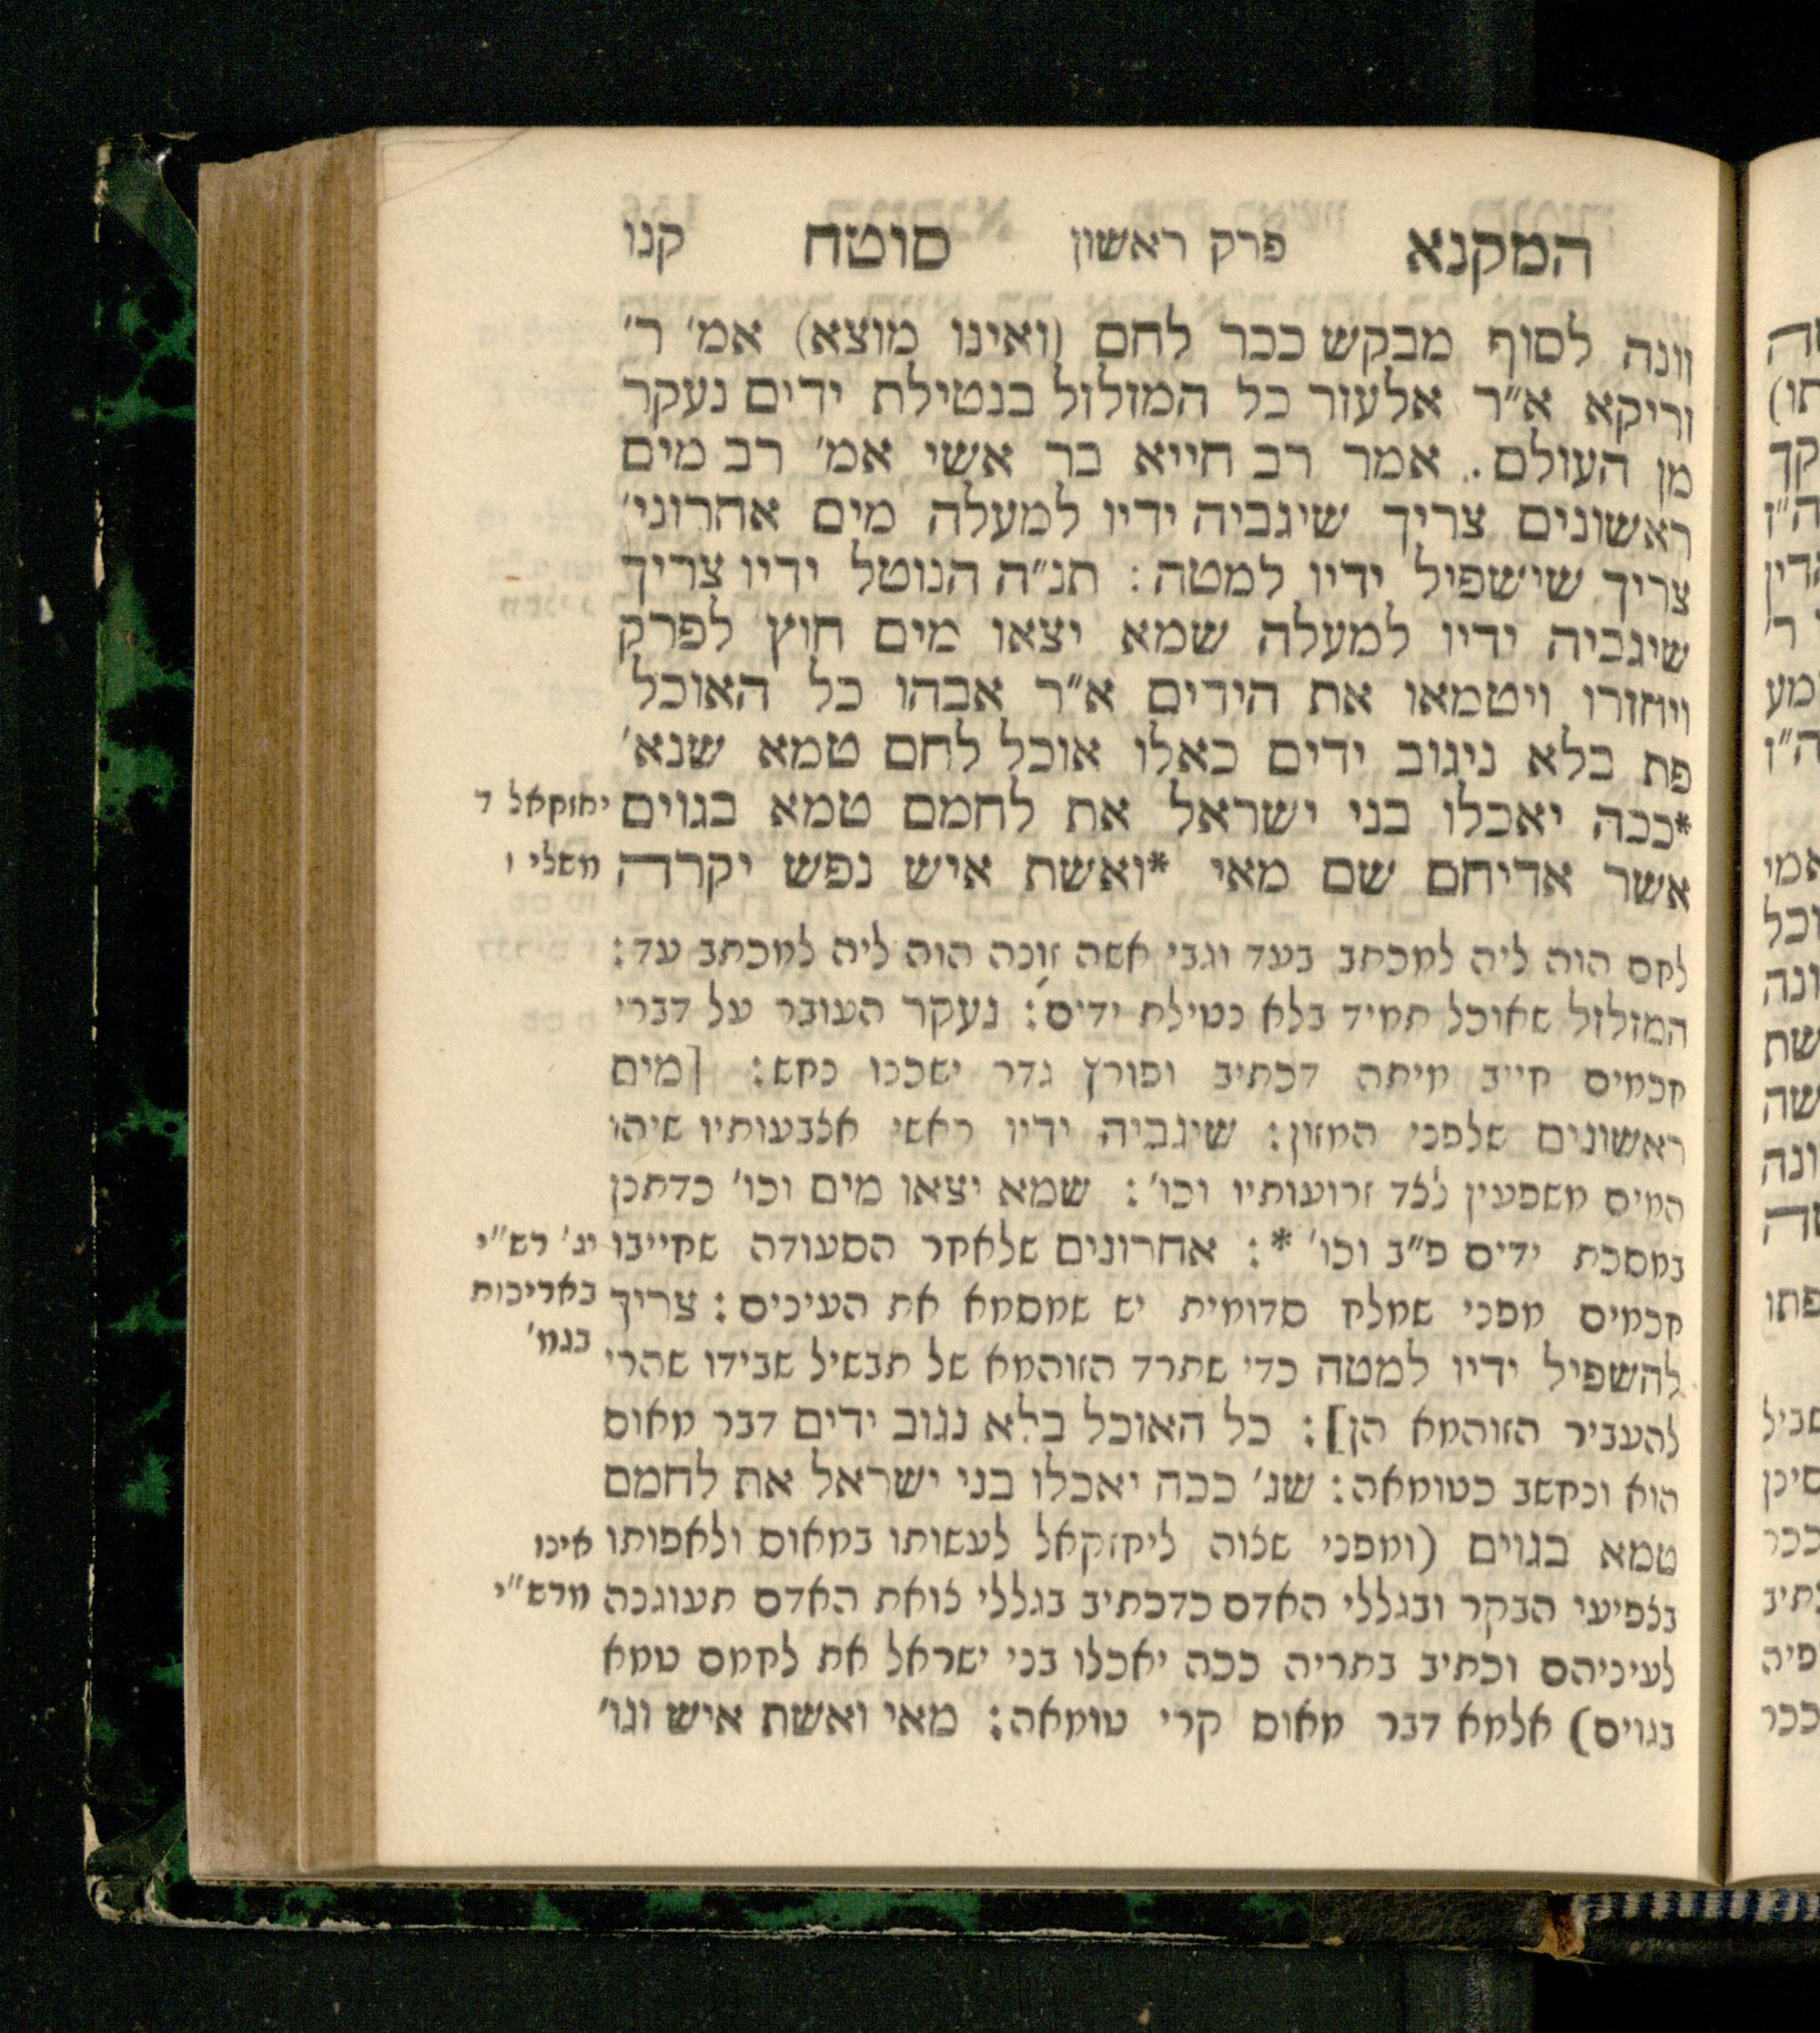 המקנא פרק ראשון סוטה קנו
זונה לסוף מבקש ככר לחם (ואינו מוצא) אמ׳ ר׳
זריקא א״ר אלעזר כל המזלזל בנטילת ידים נעקר
מן העולם. אמר רב חייא בר אשי אמ׳ רב מים
ראשונים צריך שיגביה ידיו למעלה מים אחרוני׳
צריך שישפיל ידיו למטה: תנ״ה הנוטל ידיו צריך
שיגביה ידיו למעלה שמא יצאו מים חוץ לפרק
ויחזרו ויטמאו את הידים א״ר אבהו כל האוכל
פת בלא ניגוב ידים כאלו אוכל לחם טמא שנא׳
*ככה יאכלו בני ישראל את לחמם טמא בגוים יחזקאל ד
אשר אדיחם שם מאי *ואשת איש נפש יקרה משלי ו
לחם הוה ליה למכתב בעד וגבי אשה זונה הוה ליה למכתב עד:
המזלזל שאוכל תמיד בלא נטילת ידים: נעקר העובר על דברי
חכמים חייב מיתה דכתיב ופורץ גדר ישכנו נחש: [מים
ראשונים שלפני המזון: שיגביה ידיו ראשי אצבעותיו שיהו
המים משפעין לצד זרועותיו וכו׳: שמא יצאו מים וכו׳ כדתנן
במסכת ידים פ״ב וכו׳ *: אחרונים שלאחר הסעודה שחייבו יג׳ רש״י
חכמים מפני שמלח סדומית יש שמסמא את העינים: צריך באריכות
בגמ׳
להשפיל ידיו למטה כדי שתרד הזוהמא של תבשיל שבידו שהרי
להעביר הזוהמא הן]: כל האוכל בלא נגוב ידים דבר מאוס
הוא ונחשב כטומאה: שנ׳ ככה יאכלו בני ישראל את לחמם
טמא בגוים (ומפני שצוה ליחזקאל לעשותו במאוס ולאפותו אינו
בצפיעי הבקר ובגללי האדם כדכתיב בגללי צואת האדם תעוגנה מרש״י
לעיניהם וכתיב בתריה ככה יאכלו בני ישראל את לחמם טמא
בגוים) אלמא דבר מאוס קרי טומאה: מאי ואשת איש וגו׳